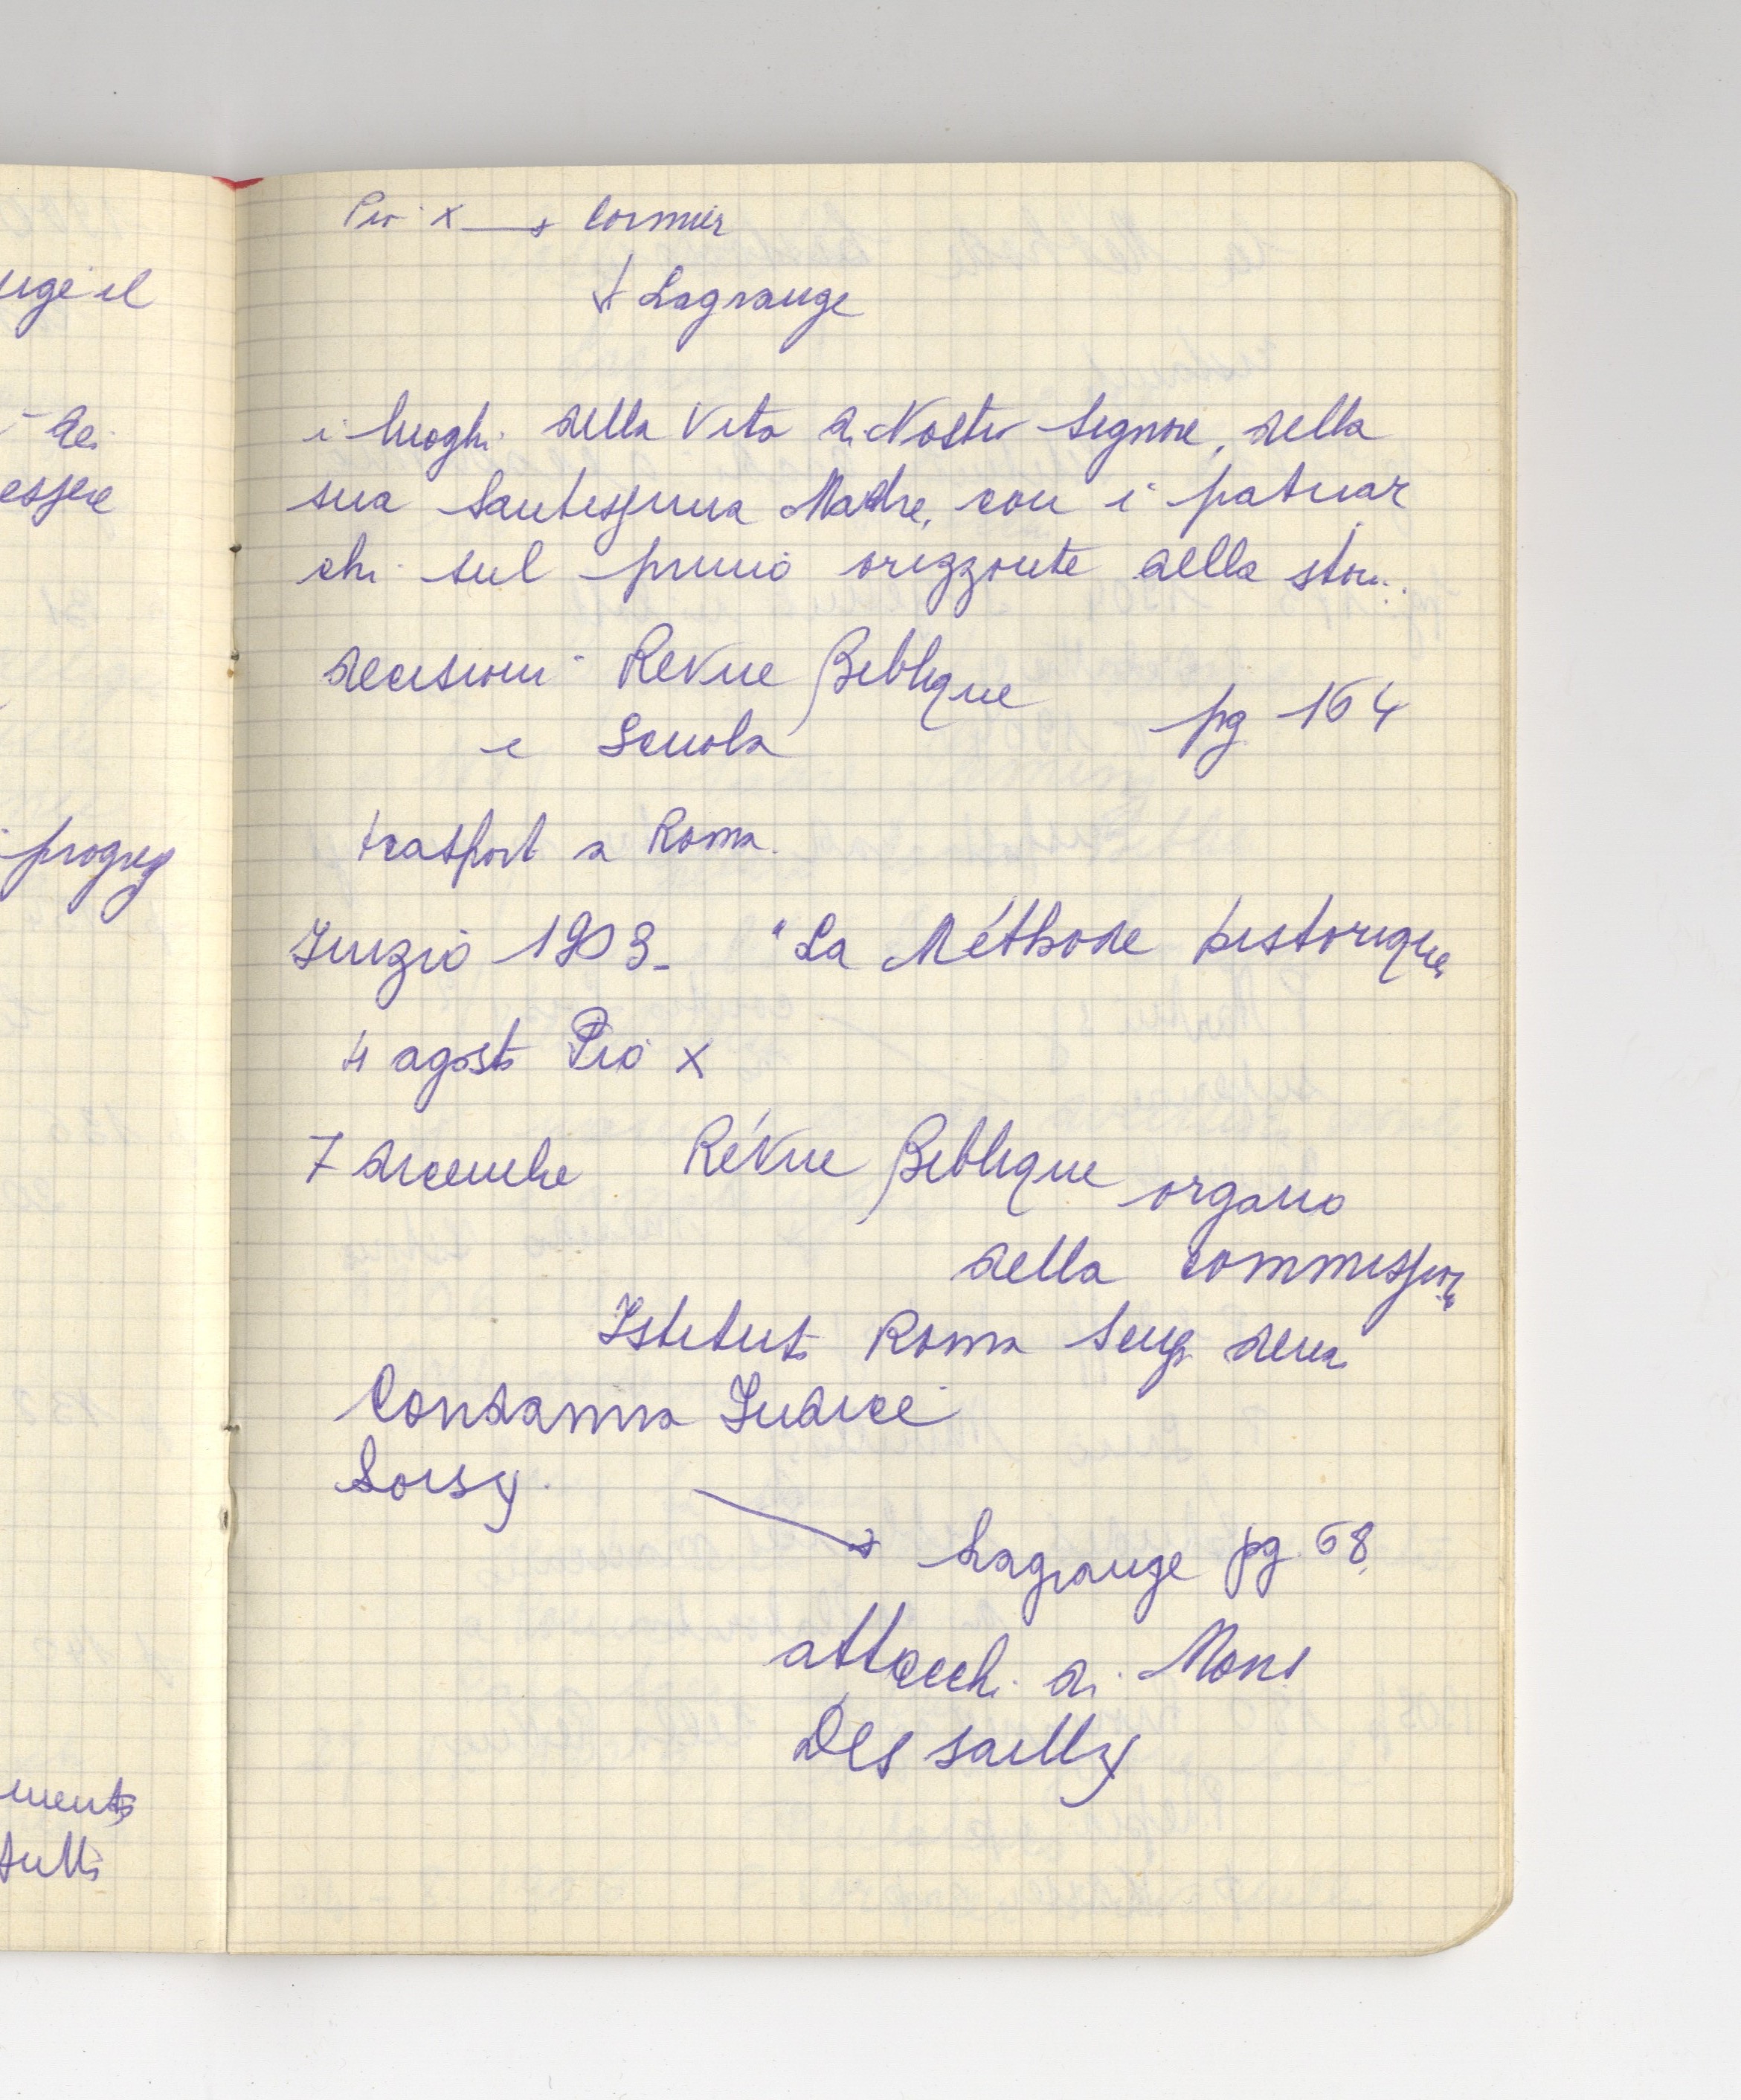 uge il
dei
essere
progres
mento
tutti
Pio X → Cormier
↓ Lagrange
i luoghi della Vita di Nostro Signore, della
sua Santissima Madre, con i patriar
chi sul primo orizzonte della stor..
decisioni Revue Biblique
e Scuola pg 164
trasport a Roma.
Inizio 1903 - "La Méthode historique
4 agosto Pio X
7 dicembre Révue Biblique organo
della commissione
Istituto Roma
Condanna Indice
Loisy.
→ Lagrange pg. 68
attacchi di Mons
Des sailly